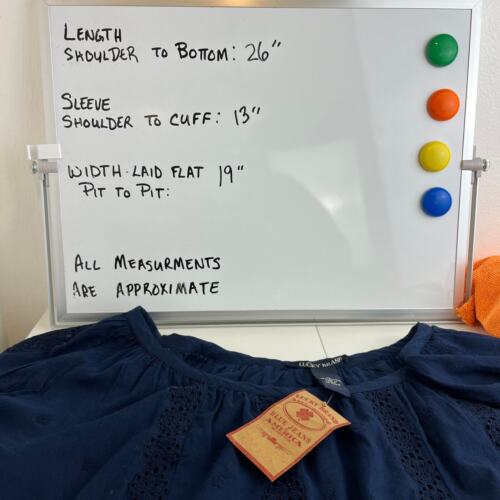 LENGTH
SHOULDER TO BOTTOM: 26"
SLEEVE
SHOULDER TO CUFF: 13"
WIDTH · LAID FLAT 19"
PIT TO PIT:
ALL MEASURMENTS
ARE APPROXIMATE
LUCKY BRAND
LUCKY BRAND
BLUE JEANS
AMERICA